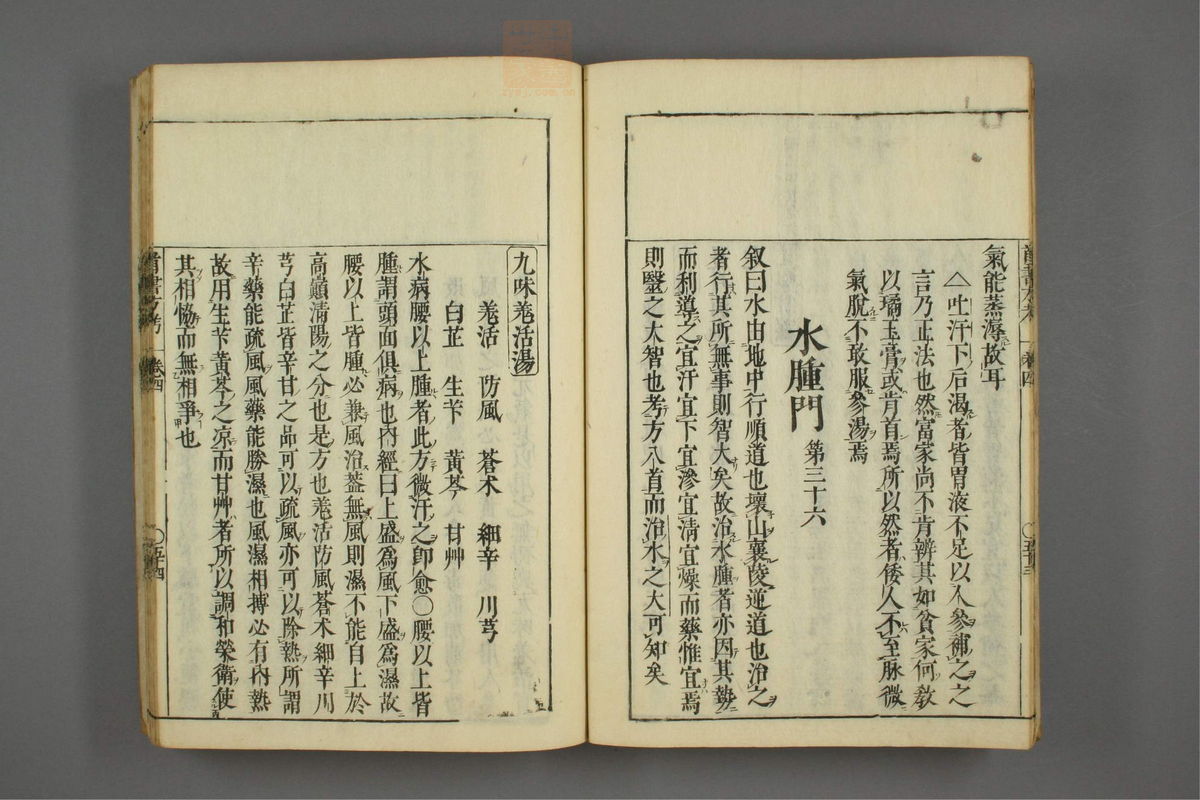 氣能蒸溽故耳
△吐汗下后渴者皆胃液不足以人參補之之
言乃正法也然富家尚不肯辨其如貧家何敎
以璚玉膏或肯首焉所以然者倭人不至脉微
氣脫不敢服參湯焉
水腫門 第三十六
叙曰水由地中行順道也壞山襄陵逆道也治之
者行其所無事則智大矣故治水腫者亦因其勢
而利導之宜汗宜下宜滲宜清宜燥而藥惟宜焉
則毉之大智也考方八首而治水之大可知矣
九味羗活湯
羗活 防風 蒼术 細辛 川芎
白芷 生芐 黄芩 甘艸
水病腰以上腫者此方微汗之即愈○腰以上皆
腫謂頭面俱病也内經曰上盛爲風下盛爲濕故
腰以上皆腫必兼風治葢無風則濕不能自上於
高顚清陽之分也是方也羗活防風蒼术細辛川
芎白芷皆辛甘之品可以疏風亦可以除熱所謂
辛藥能疏風風藥能勝濕也風濕相搏必有内熱
故用生芐黄芩之凉而甘艸者所以調和榮衛使
其相恊而無相爭也
卷四
五十四
zygj.com.cn